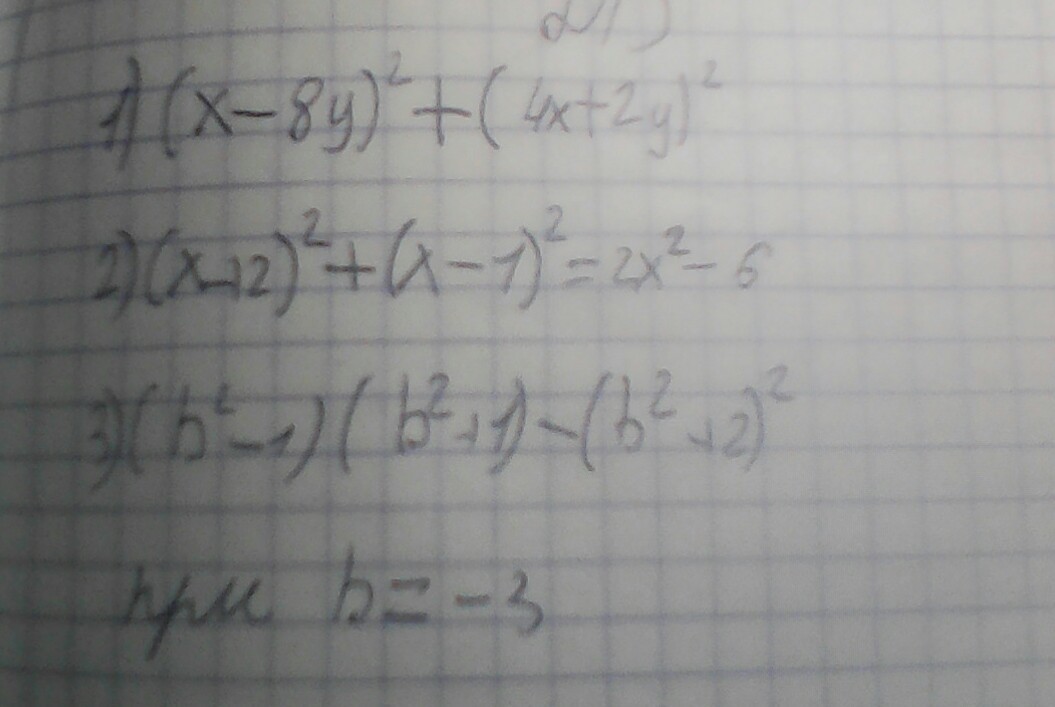 1) (x-8y)² + (4x+2y)²
2) (x+2)² + (x-1)² = 2x² - 6
3) (b²-1) (b²+1) - (b²+2)²
при b = -3